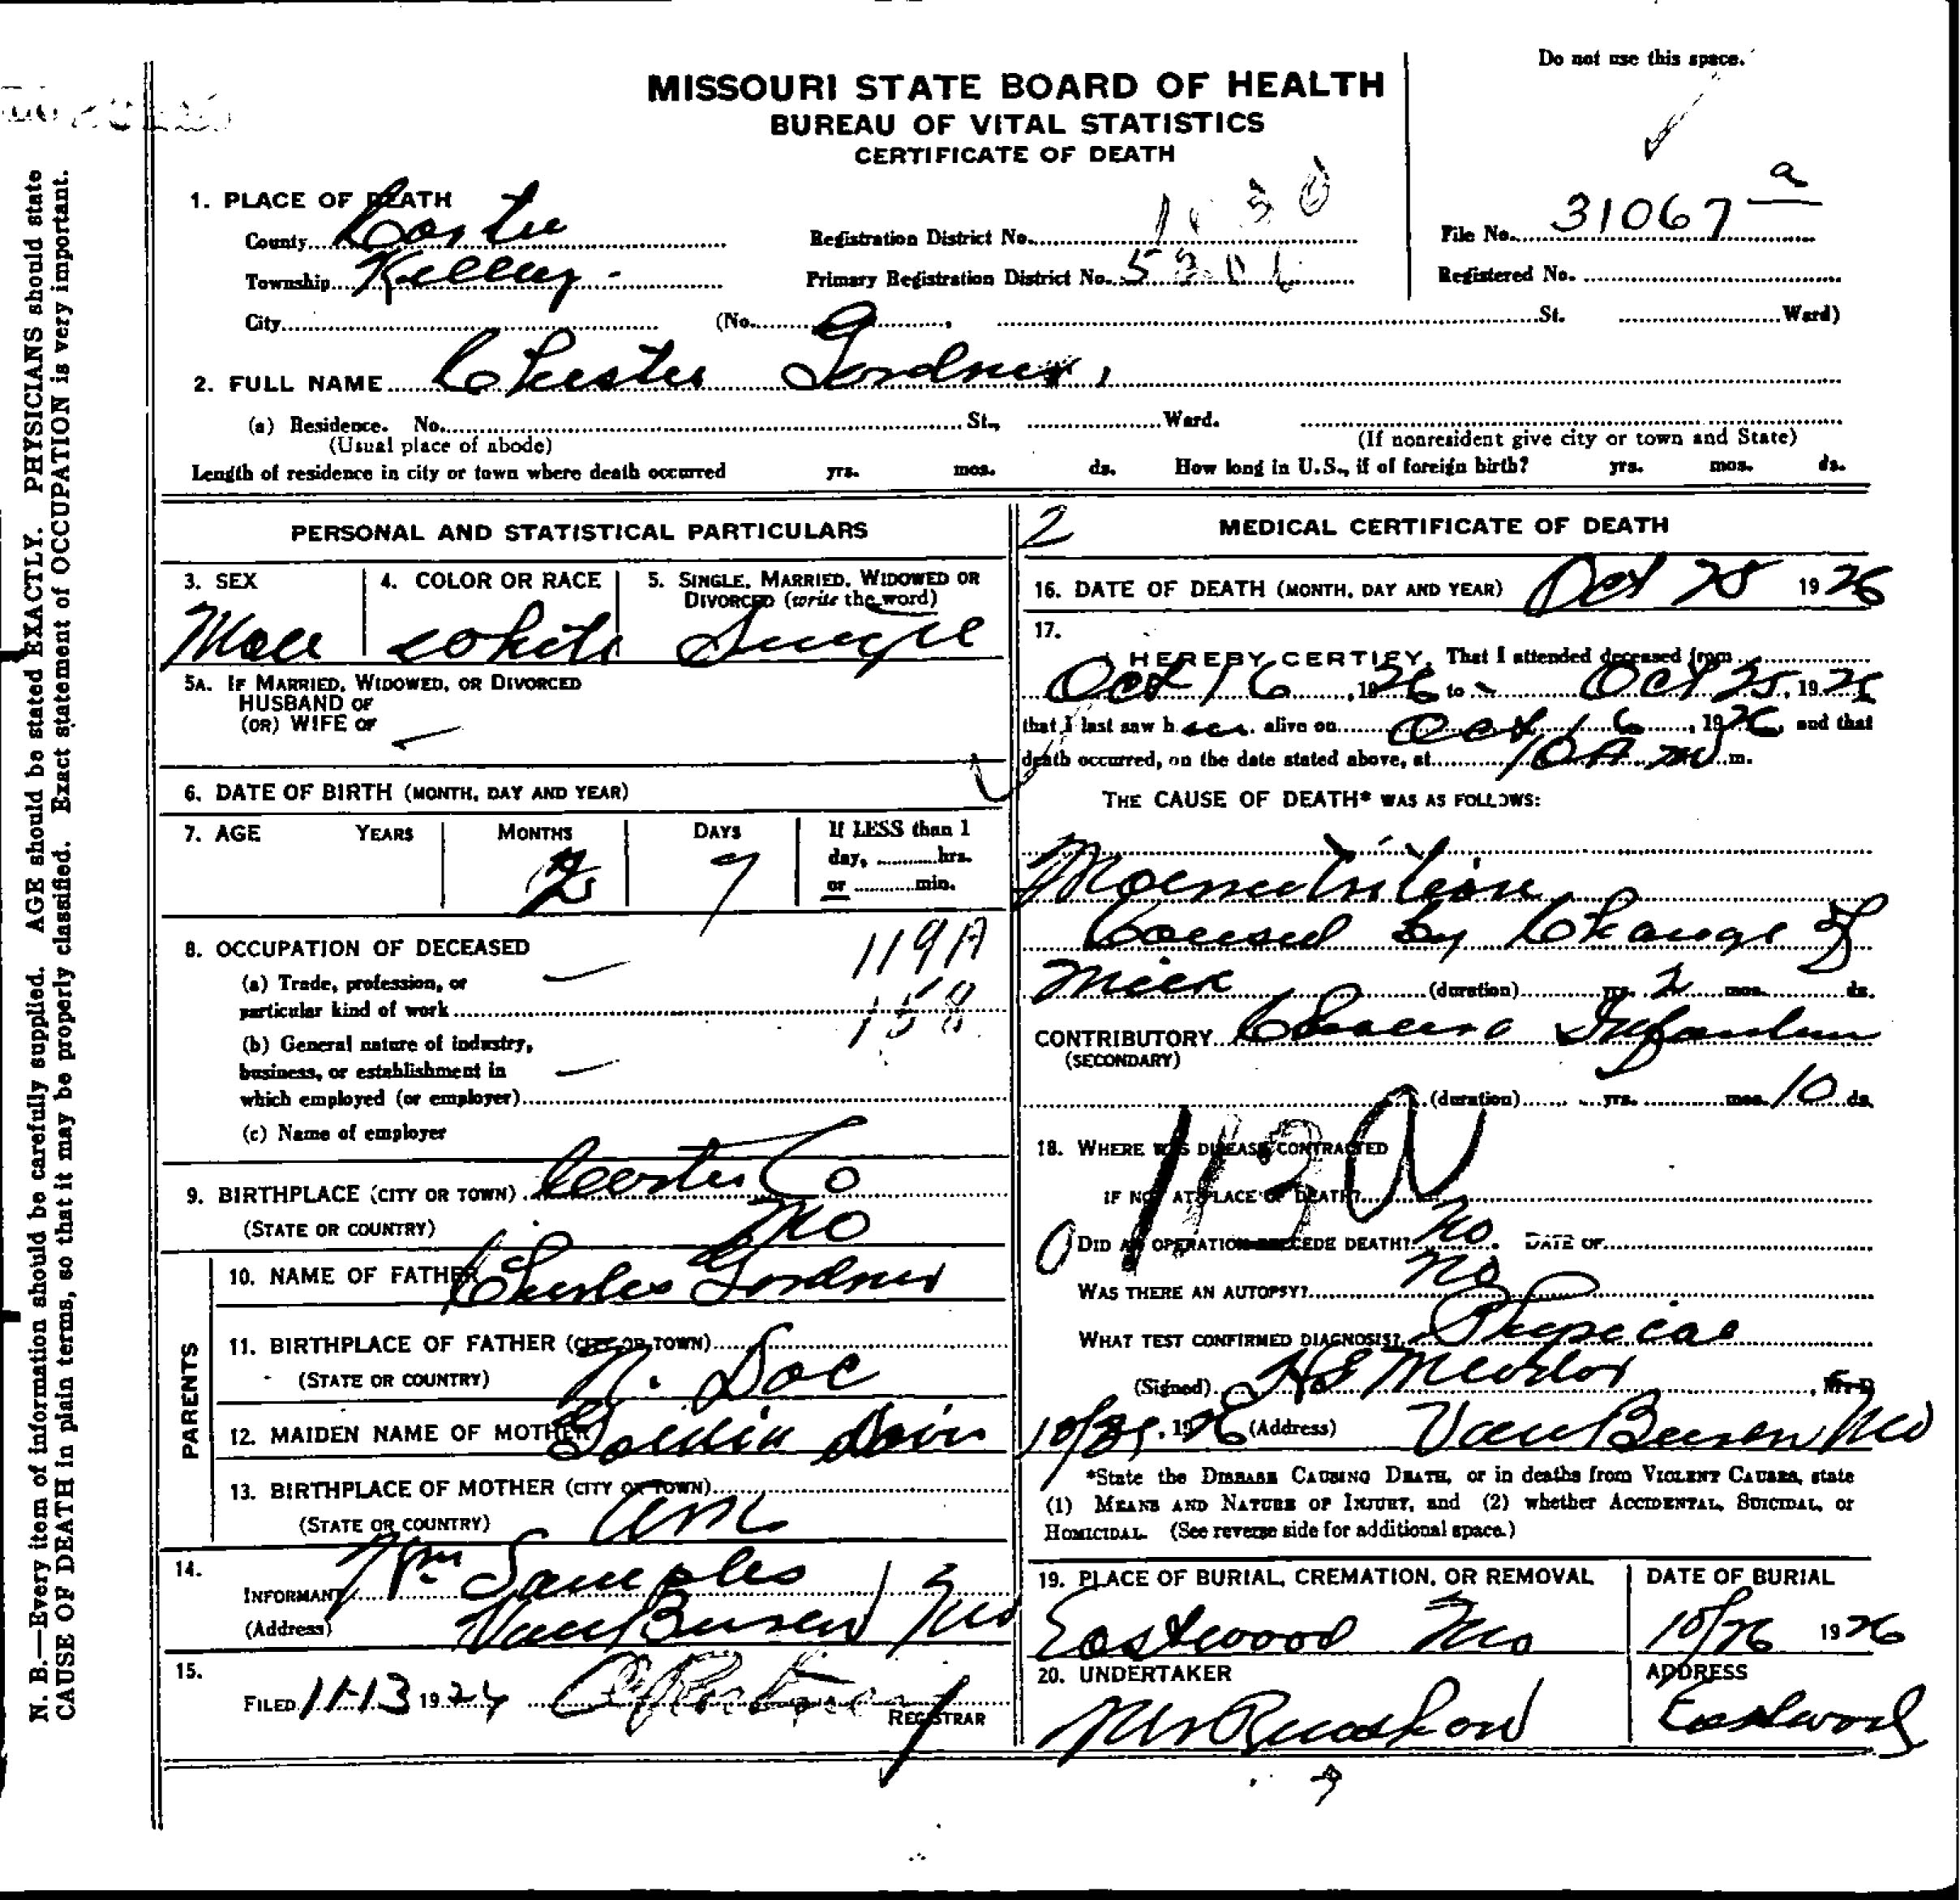 Do not use this space.
MISSOURI STATE BOARD OF HEALTH
BUREAU OF VITAL STATISTICS
CERTIFICATE OF DEATH
1. PLACE OF DEATH
County Carter
Township Kelley
City (No. , St. Ward)
Registration District No. 1030
Primary Registration District No.
File No. 31067 a
Registered No.
2. FULL NAME Chester Gordner
(a) Residence. No. St., Ward.
(Usual place of abode) (If nonresident give city or town and State)
Length of residence in city or town where death occurred yrs. mos. ds. How long in U.S., if of foreign birth? yrs. mos. ds.
PERSONAL AND STATISTICAL PARTICULARS
3. SEX 4. COLOR OR RACE 5. SINGLE, MARRIED, WIDOWED OR DIVORCED (write the word)
Male white Single
5A. IF MARRIED, WIDOWED, OR DIVORCED
HUSBAND OF
(OR) WIFE OF
6. DATE OF BIRTH (MONTH, DAY AND YEAR)
7. AGE YEARS MONTHS DAYS If LESS than 1
day, hrs.
or min.
2 7
8. OCCUPATION OF DECEASED 119A
(a) Trade, profession, or
particular kind of work 158
(b) General nature of industry,
business, or establishment in
which employed (or employer)
(c) Name of employer
9. BIRTHPLACE (CITY OR TOWN) Carter Co
(STATE OR COUNTRY) Mo
PARENTS
10. NAME OF FATHER Charles Gordner
11. BIRTHPLACE OF FATHER (CITY OR TOWN)
(STATE OR COUNTRY) N. Doc
12. MAIDEN NAME OF MOTHER Goldia Davis
13. BIRTHPLACE OF MOTHER (CITY OR TOWN)
(STATE OR COUNTRY)
14.
INFORMANT Wm Samples
(Address) Van Buren Mo
15.
FILED 11-13 19
REGISTRAR
2
MEDICAL CERTIFICATE OF DEATH
16. DATE OF DEATH (MONTH, DAY AND YEAR) Oct 25 1926
17.
I HEREBY CERTIFY, That I attended deceased from
Oct 16, 1926 to Oct 25, 1926
that I last saw h alive on Oct 16, 1926, and that
death occurred, on the date stated above, at 10 A m m.
THE CAUSE OF DEATH* WAS AS FOLLOWS:
Malnutrition
Caused by Change of
Milk (duration) yrs. 2 mos. ds.
CONTRIBUTORY Cholera Infantum
(SECONDARY)
(duration) yrs. mos. 10 ds.
113
18. WHERE WAS DISEASE CONTRACTED
IF NOT AT PLACE OF DEATH?
DID AN OPERATION PRECEDE DEATH? No. DATE OF
WAS THERE AN AUTOPSY? No
WHAT TEST CONFIRMED DIAGNOSIS? Physical
(Signed) H S Meador, M. D
1926 (Address) Van Buren Mo
*State the DISEASE CAUSING DEATH, or in deaths from VIOLENT CAUSES, state
(1) MEANS AND NATURE OF INJURY, and (2) whether ACCIDENTAL, SUICIDAL, or
HOMICIDAL. (See reverse side for additional space.)
19. PLACE OF BURIAL, CREMATION, OR REMOVAL DATE OF BURIAL
Eastwood Mo 10/26 1926
20. UNDERTAKER ADDRESS
Eastwood
N. B.—Every item of information should be carefully supplied. AGE should be stated EXACTLY. PHYSICIANS should state
CAUSE OF DEATH in plain terms, so that it may be properly classified. Exact statement of OCCUPATION is very important.